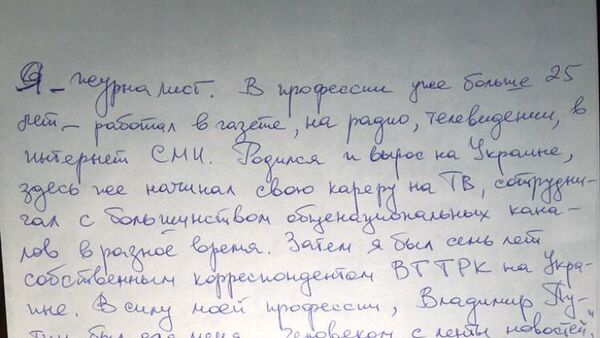 Я – журналист. В профессии уже больше 25
лет – работал в газете, на радио, телевидении, в
интернет СМИ. Родился и вырос на Украине,
здесь же начинал свою кареру на ТВ, сотрудни-
чал с большинством общенациональных кана-
лов в разное время. Затем я был семь лет
собственным корреспондентом ВГТРК на Укра-
ине. В силу моей профессии, Владимир Пу-
тин был для меня "человеком с ленты новостей,"